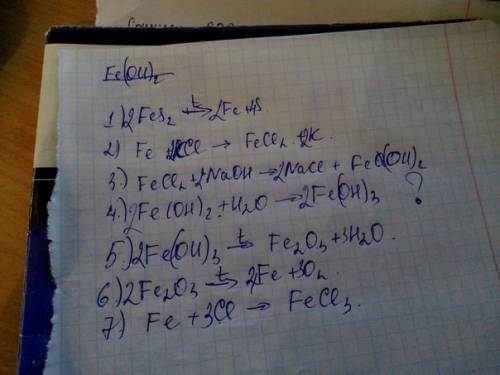 Fe(OH)₂
1) 2FeS₂ →t 2Fe+S
2) Fe + 2KCl → FeCl₂ + 2K.
3.) FeCl₂ + 2NaOH → 2NaCl + Fe(OH)₂
4.) 2Fe(OH)₂ + H₂O → 2Fe(OH)₃ ?
5) 2Fe(OH)₃ →t Fe₂O₃ + 3H₂O.
6) 2Fe₂O₃ →t 2Fe + 3O₂.
7) Fe + 3Cl → FeCl₃.